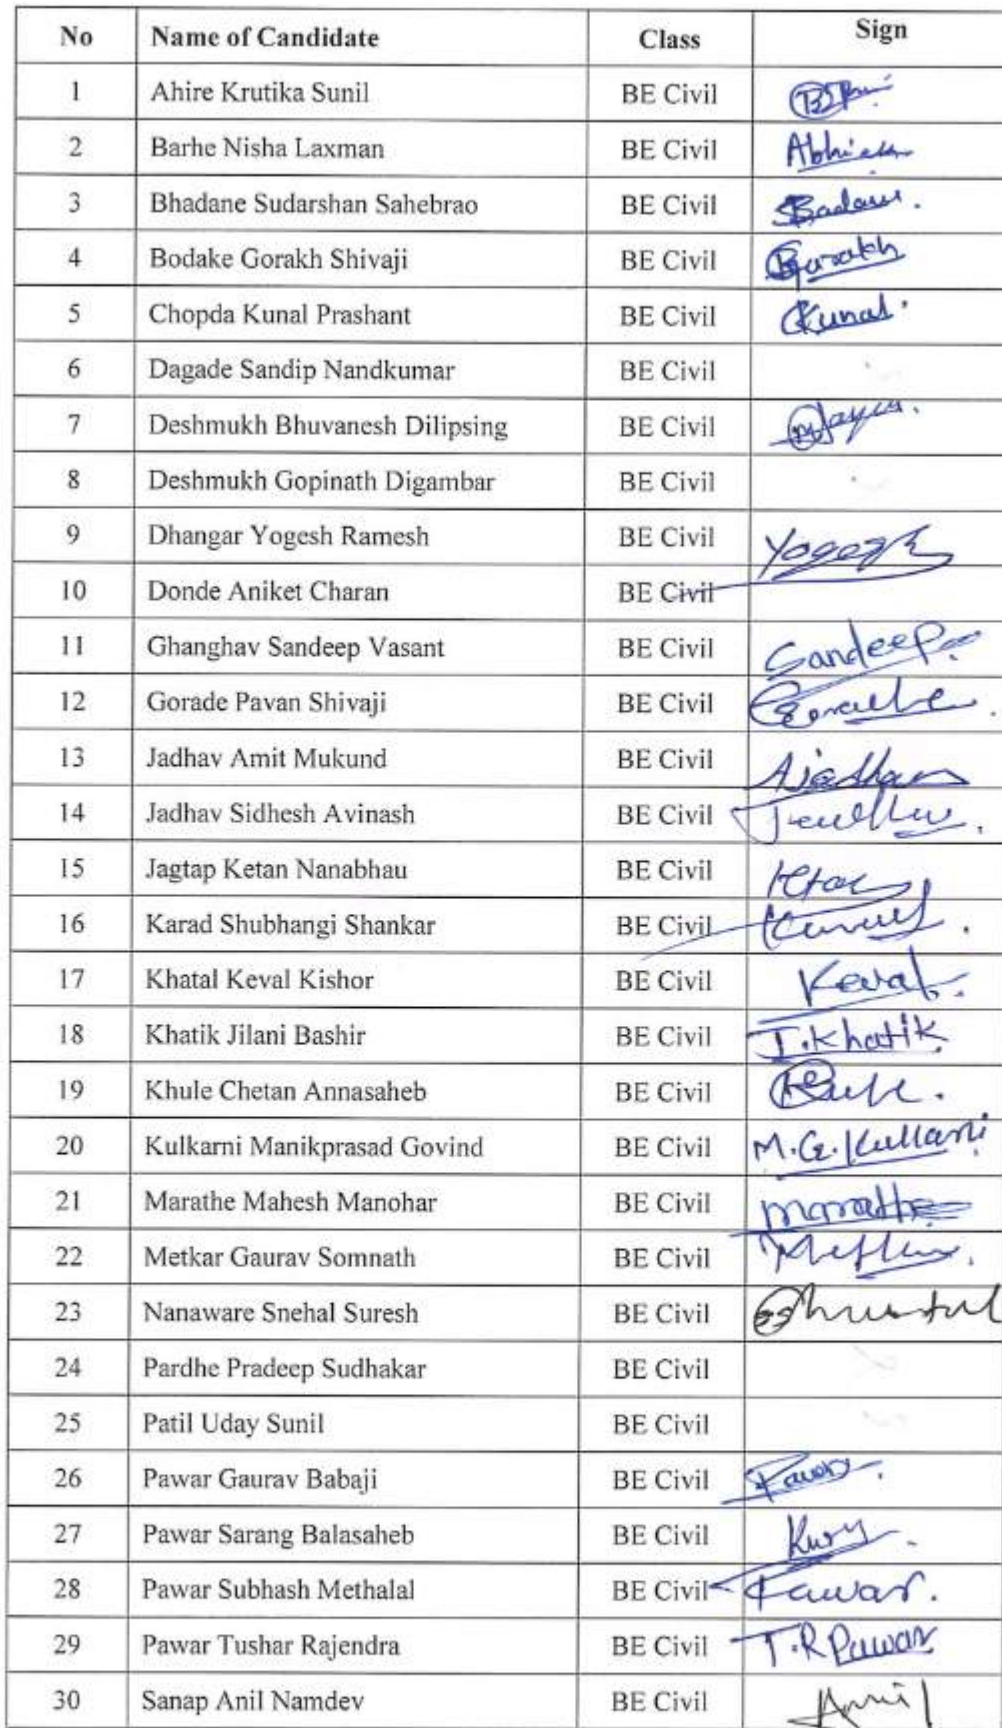 No Name of Candidate Class Sign
1 Ahire Krutika Sunil BE Civil
2 Barhe Nisha Laxman BE Civil
3 Bhadane Sudarshan Sahebrao BE Civil
4 Bodake Gorakh Shivaji BE Civil Gorakh
5 Chopda Kunal Prashant BE Civil Kunal.
6 Dagade Sandip Nandkumar BE Civil
7 Deshmukh Bhuvanesh Dilipsing BE Civil
8 Deshmukh Gopinath Digambar BE Civil
9 Dhangar Yogesh Ramesh BE Civil Yogesh
10 Donde Aniket Charan BE Civil
11 Ghanghav Sandeep Vasant BE Civil Sandeep
12 Gorade Pavan Shivaji BE Civil
13 Jadhav Amit Mukund BE Civil
14 Jadhav Sidhesh Avinash BE Civil
15 Jagtap Ketan Nanabhau BE Civil
16 Karad Shubhangi Shankar BE Civil
17 Khatal Keval Kishor BE Civil Keval.
18 Khatik Jilani Bashir BE Civil J.Khatik
19 Khule Chetan Annasaheb BE Civil
20 Kulkarni Manikprasad Govind BE Civil M.G.
21 Marathe Mahesh Manohar BE Civil marathe
22 Metkar Gaurav Somnath BE Civil
23 Nanaware Snehal Suresh BE Civil
24 Pardhe Pradeep Sudhakar BE Civil
25 Patil Uday Sunil BE Civil
26 Pawar Gaurav Babaji BE Civil
27 Pawar Sarang Balasaheb BE Civil
28 Pawar Subhash Methalal BE Civil Pawar.
29 Pawar Tushar Rajendra BE Civil T.R Pawar
30 Sanap Anil Namdev BE Civil Anil